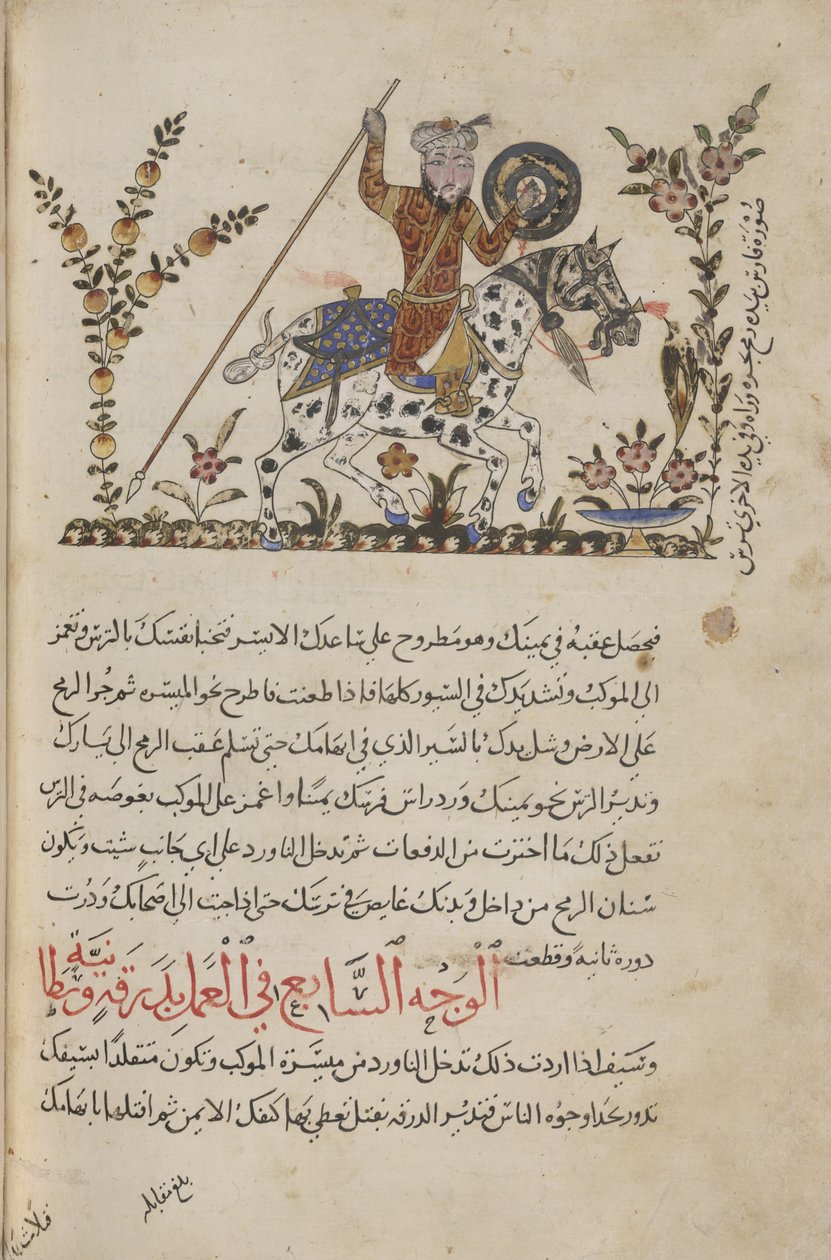 صورة فارس بيده رمح يجره وراه وفي يده الاخري ترس
فيحصل عقبه في يمينك وهو مطروح علي ساعدك الايسر فتخبا نفسك بالترس وتغمز
الي الموكب وتشد يدك في السيور كلها فاذا طعنت فاطرح نحو الميسره ثم جر الرمح
علي الارض وشل يدك بالسير الذي في ابهامك حتي تسلم عقب الرمح الي يسارك
وتدير الترس نحو يمينك ورد راس فرسك يمينا واغمز علي الموكب بغوصه في الترس
تفعل ذلك ما اخترت من الدفعات ثم تدخل الناورد علي اي جانب شيت ويكون
سنان الرمح من داخل وبدنك غايص في ترسك حتي اذا جيت الي اصحابك ودرت
دوره ثانيه وقطعت
الوجه السابع في العمل بدرقة وبطانية
وسيف اذا اردت ذلك تدخل الناورد من ميسرة الموكب وتكون متقلدا بسيفك
تدور بحدا وجوه الناس فتدير الدرقه بفتل تعطي بها كتفك الايمن ثم افتلها بابهامك
بلغ مقابله